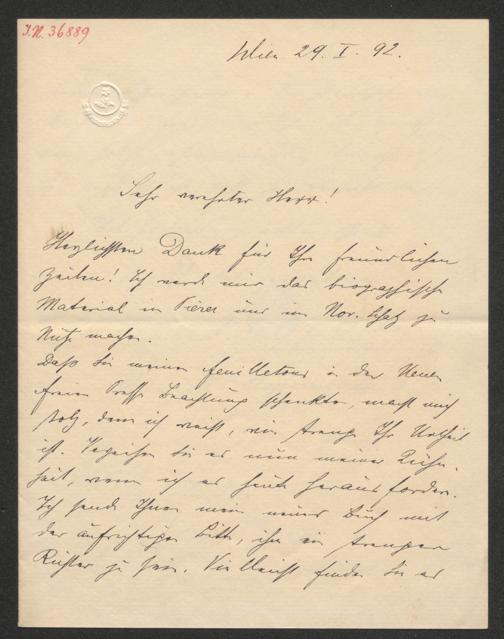 I.N. 36889
Wien 29. I. 92.
Sehr verehrter Herr!
Herzlichsten Dank für Ihre freundlichen
Zeilen! Ich werde mir das biographische
Material in Pierer und im Nov. Schatz zu
Nutze machen.
Daß Sie meinen Feuilletons in der Neuen
freien Presse Beachtung schenkten, macht mich
stolz, denn ich weiß, wie streng Ihr Urtheil
ist. Verzeihen Sie es nun meiner Kühn-
heit, wenn ich es heute herausfordere.
Ich sende Ihnen mein neues Buch mit
der aufrichtigen Bitte, ihm ein strenger
Richter zu sein. Vielleicht finden Sie es